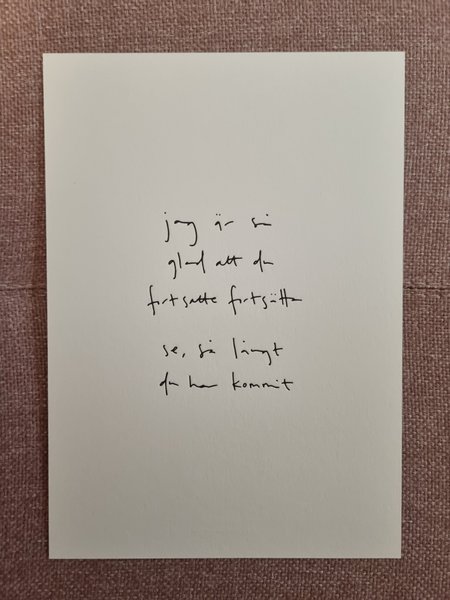 jag är så
glad att du
fortsatte fortsätta
se, så långt
du har kommit